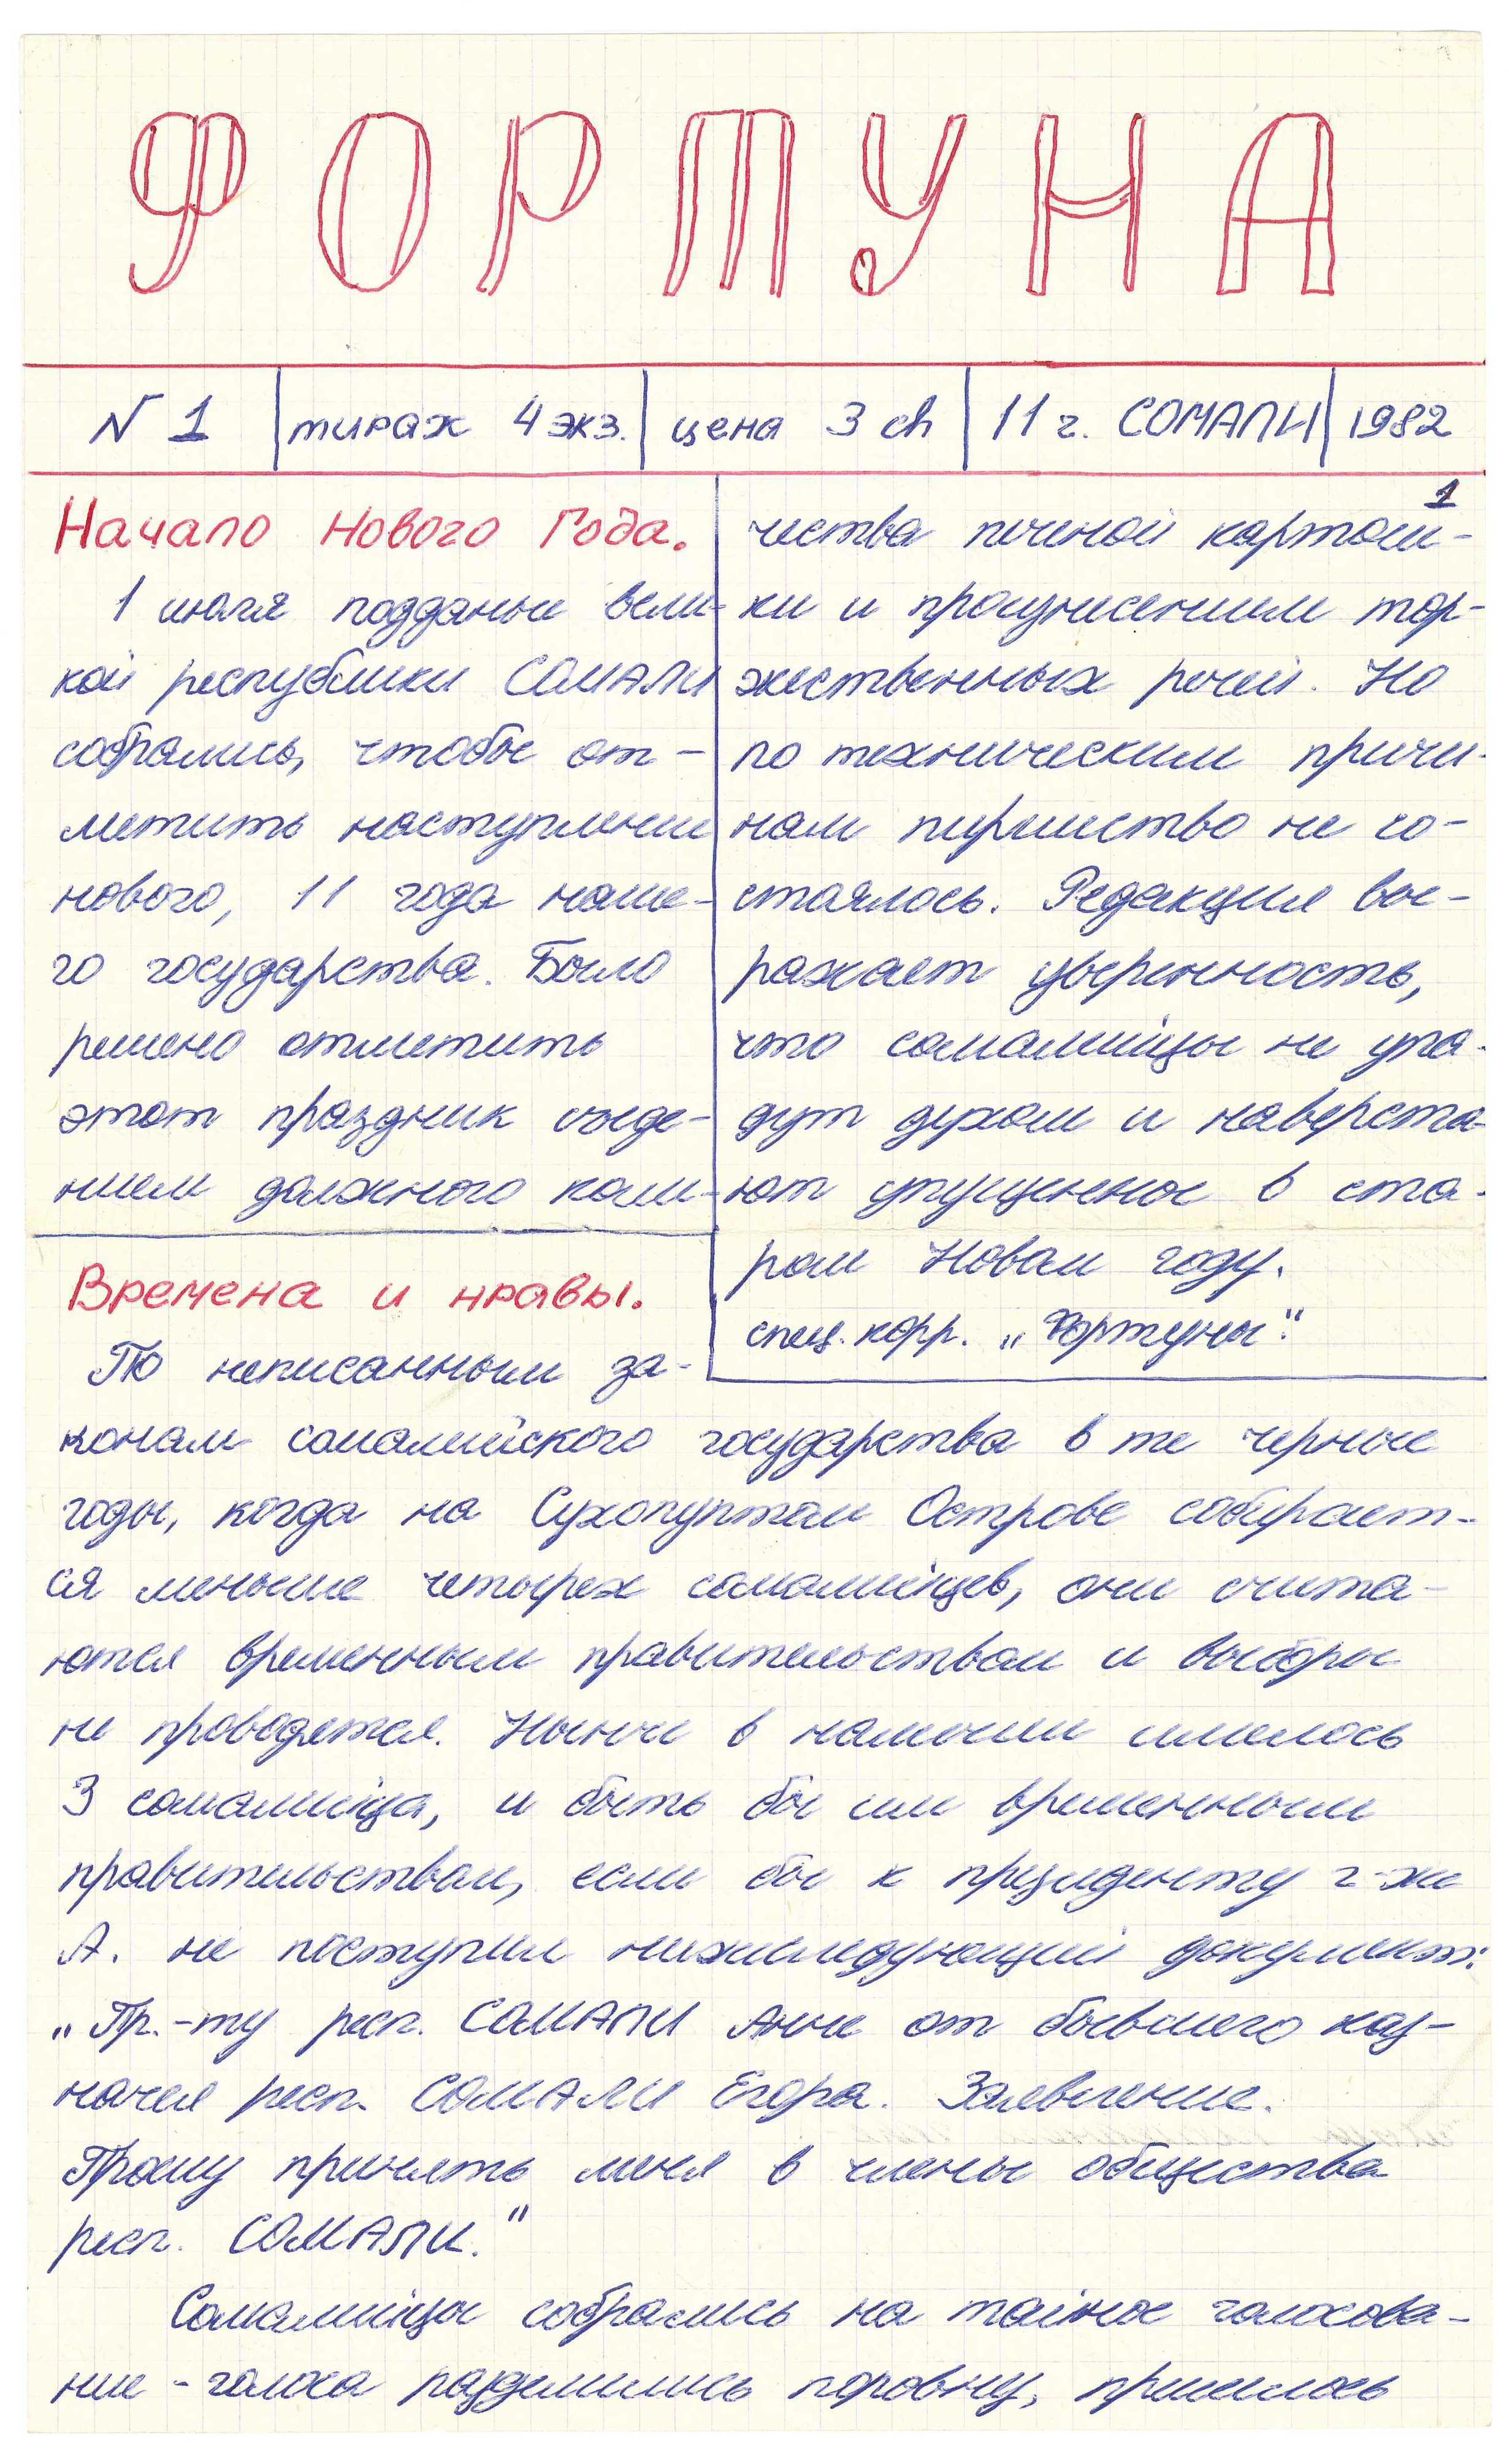 ФОРТУНА
№ 1 тираж 4 экз. цена 3 ch 11 г. СОМАЛИ 1982
1
Начало Нового Года.
1 июля подданые вели-
кой республики СОМАЛИ
собрались, чтобы от-
метить наступление
нового, 11 года наше-
го государства. Было
решено отметить
этот праздник съеде-
нием должного коли-
чества печеной картош-
ки и произнесением тор-
жественных речей. Но
по техническим причи-
нам пиршество не со-
стоялось. Редакция вы-
ражает уверенность,
что сомалийцы не упа-
дут духом и наверста-
ют упущенное в ста-
ром Новом году.
спец. корр. „Фортуны".
Времена и нравы.
По неписанным за-
конам сомалийского государства в те черные
годы, когда на Сухопутном Острове собирает-
ся меньше четырех сомалийцев, они счита-
ются временным правительством и выборы
не проводятся. Нынче в наличии имелось
3 сомалийца, и быть бы им временным
правительством, если бы к президенту г-же
А. не поступил нижеследующий документ:
„Пр.-ту респ. СОМАЛИ Ане от бывшего каз-
начея респ. СОМАЛИ Егора. Заявление.
Прошу принять меня в члены общества
респ. СОМАЛИ."
Сомалийцы собрались на тайное голосова-
ние - голоса разделились поровну, пришлось